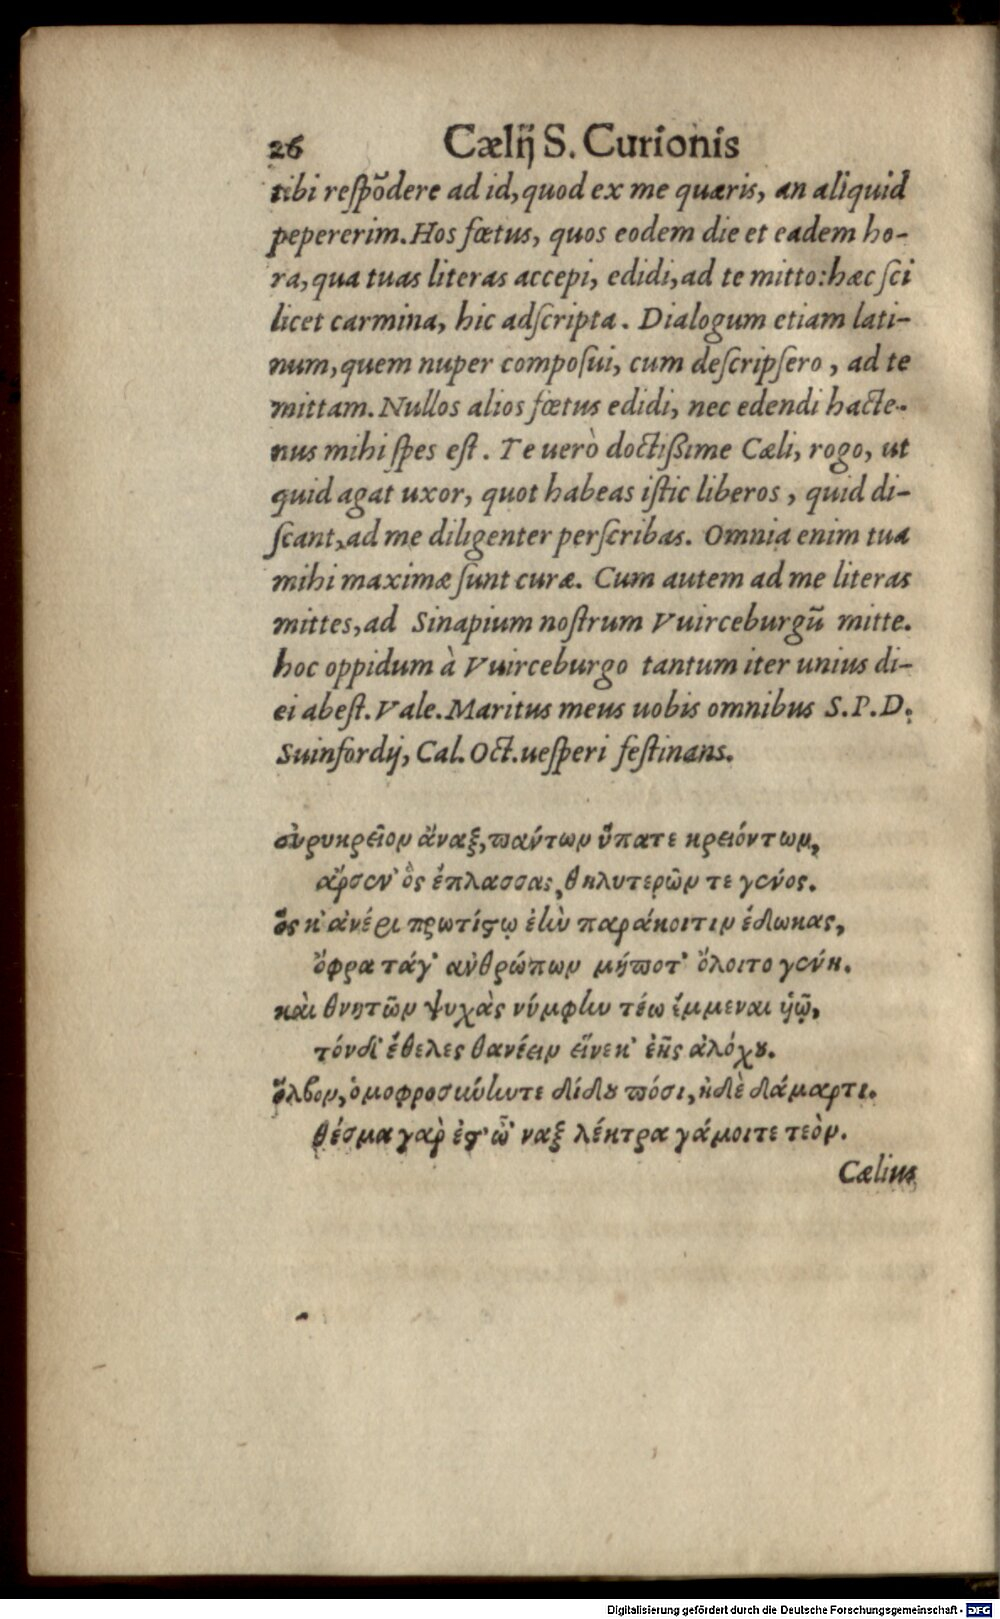 26 Cælij S. Curionis
tibi respõdere ad id, quod ex me quæris, an aliquid
pepererim. Hos fœtus, quos eodem die et eadem ho-
ra, qua tuas literas accepi, edidi, ad te mitto: hæc sci
licet carmina, hic adscripta. Dialogum etiam lati-
num, quem nuper composui, cum descripsero, ad te
mittam. Nullos alios fœtus edidi, nec edendi hacte-
nus mihi spes est. Te uerò doctißime Cæli, rogo, ut
quid agat uxor, quot habeas istic liberos, quid di-
scant, ad me diligenter perscribas. Omnia enim tua
mihi maximæ sunt curæ. Cum autem ad me literas
mittes, ad Sinapium nostrum Vuirceburgũ mitte.
hoc oppidum à Vuirceburgo tantum iter unius di-
ei abest. Vale. Maritus meus uobis omnibus S.P.D.
Suinfordij, Cal. Oct. uesperi festinans.
εὐρυκρεῖον ἄναξ, πάντων ὕπατε κρειόντων,
ἄρσεν' ὃς ἔπλασσας, θηλυτερῶν τε γένος.
ὅς κ' ἀνέρι πρωτίστῳ ἑὴν παράκοιτιν ἔδωκας,
ὄφρα τάγ' ἀνθρώπων μήποτ' ὄλοιτο γένη.
καὶ θνητῶν ψυχὰς νύμφην τέω ἔμμεναι ὑῷ,
τόνδ' ἔθελες θανέειν εἵνεκ' ἑῆς ἀλόχου.
ὄλβον, ὁμοφροσύνηντε δίδου πόσι, ἠδὲ δάμαρτι.
θέσμα γὰρ ἐστ' ὦ' ναξ λέκτρα γάμοιτε τεὸν.
Cælius
Digitalisierung gefördert durch die Deutsche Forschungsgemeinschaft - DFG